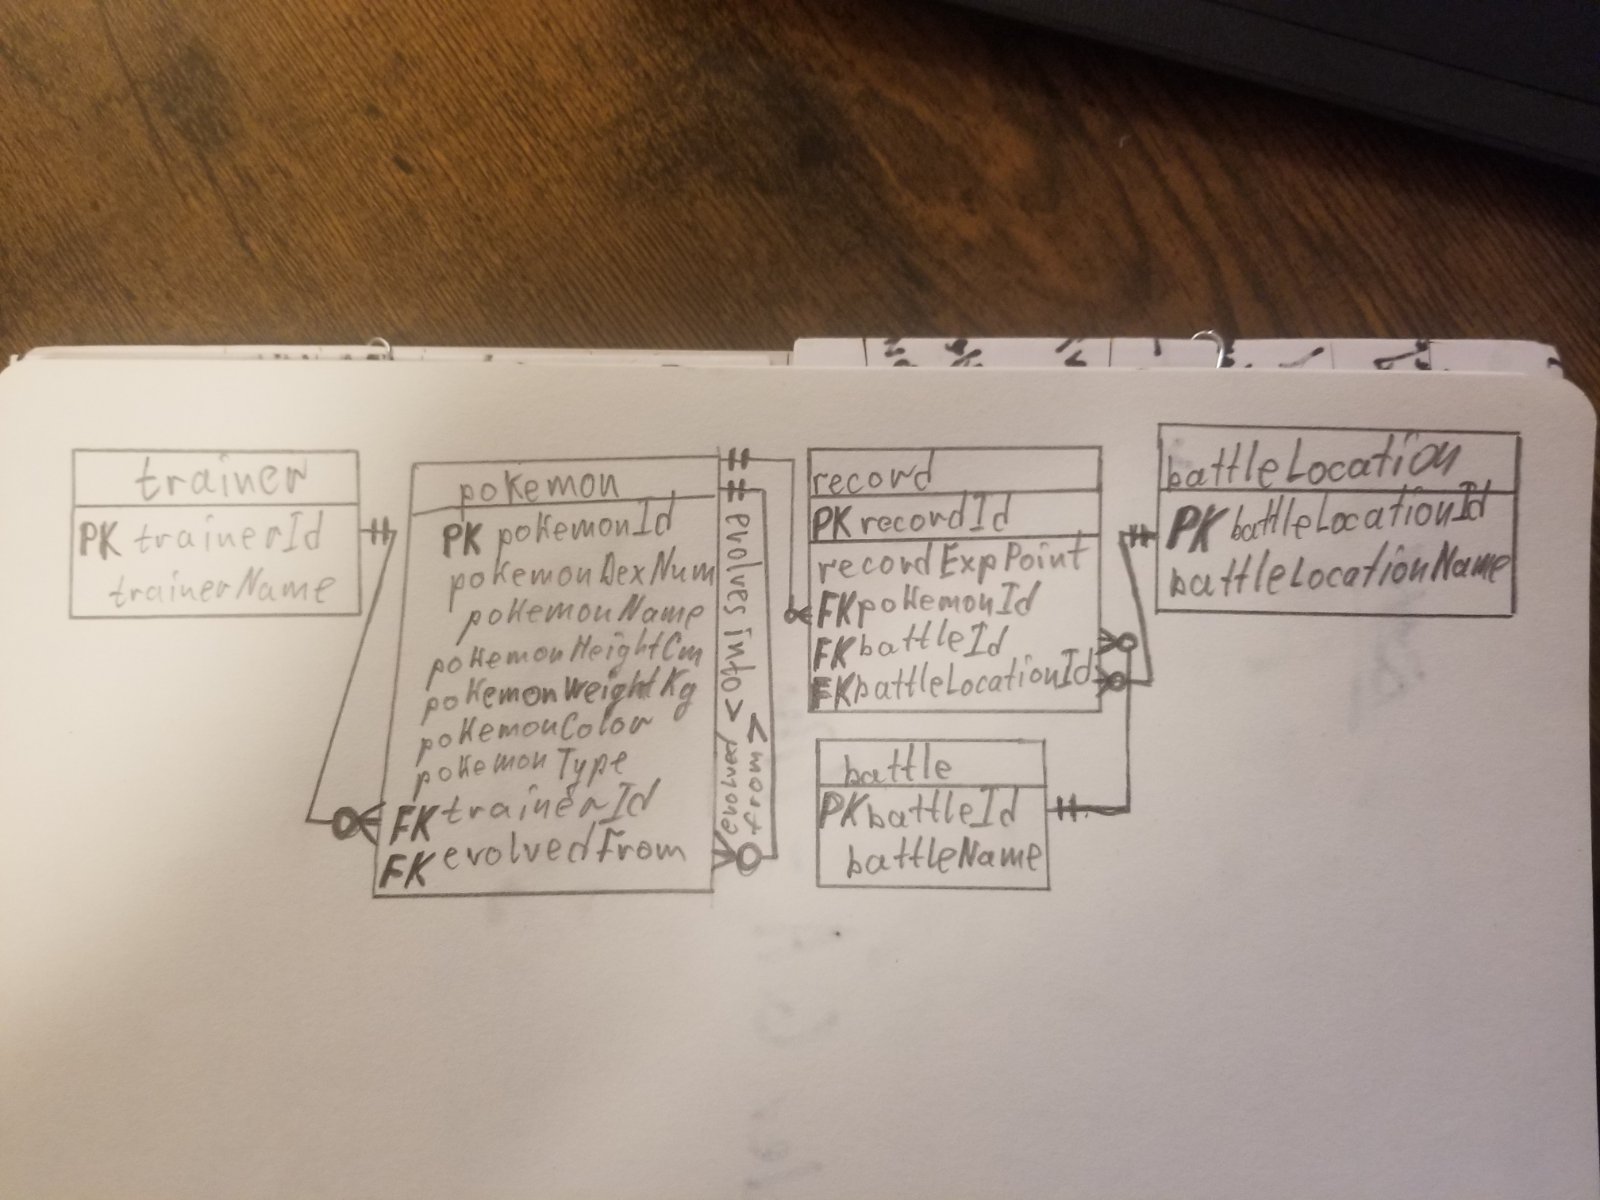 trainer
PK trainerId
trainerName
pokemon
PK pokemonId
pokemonDexNum
pokemonName
pokemonHeightCm
pokemonWeightKg
pokemonColor
pokemonType
FK trainerId
FK evolvedFrom
evolves into >
< evolved from
record
PK recordId
recordExpPoint
FK pokemonId
FK battleId
FK battleLocationId
battle
PK battleId
battleName
battleLocation
PK battleLocationId
battleLocationName